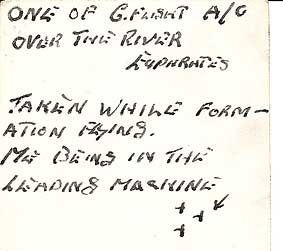 ONE OF G.FLIGHT A/C
OVER THE RIVER
EUPHRATES
TAKEN WHILE FORM-
ATION FLYING.
ME BEING IN THE
LEADING MACHINE